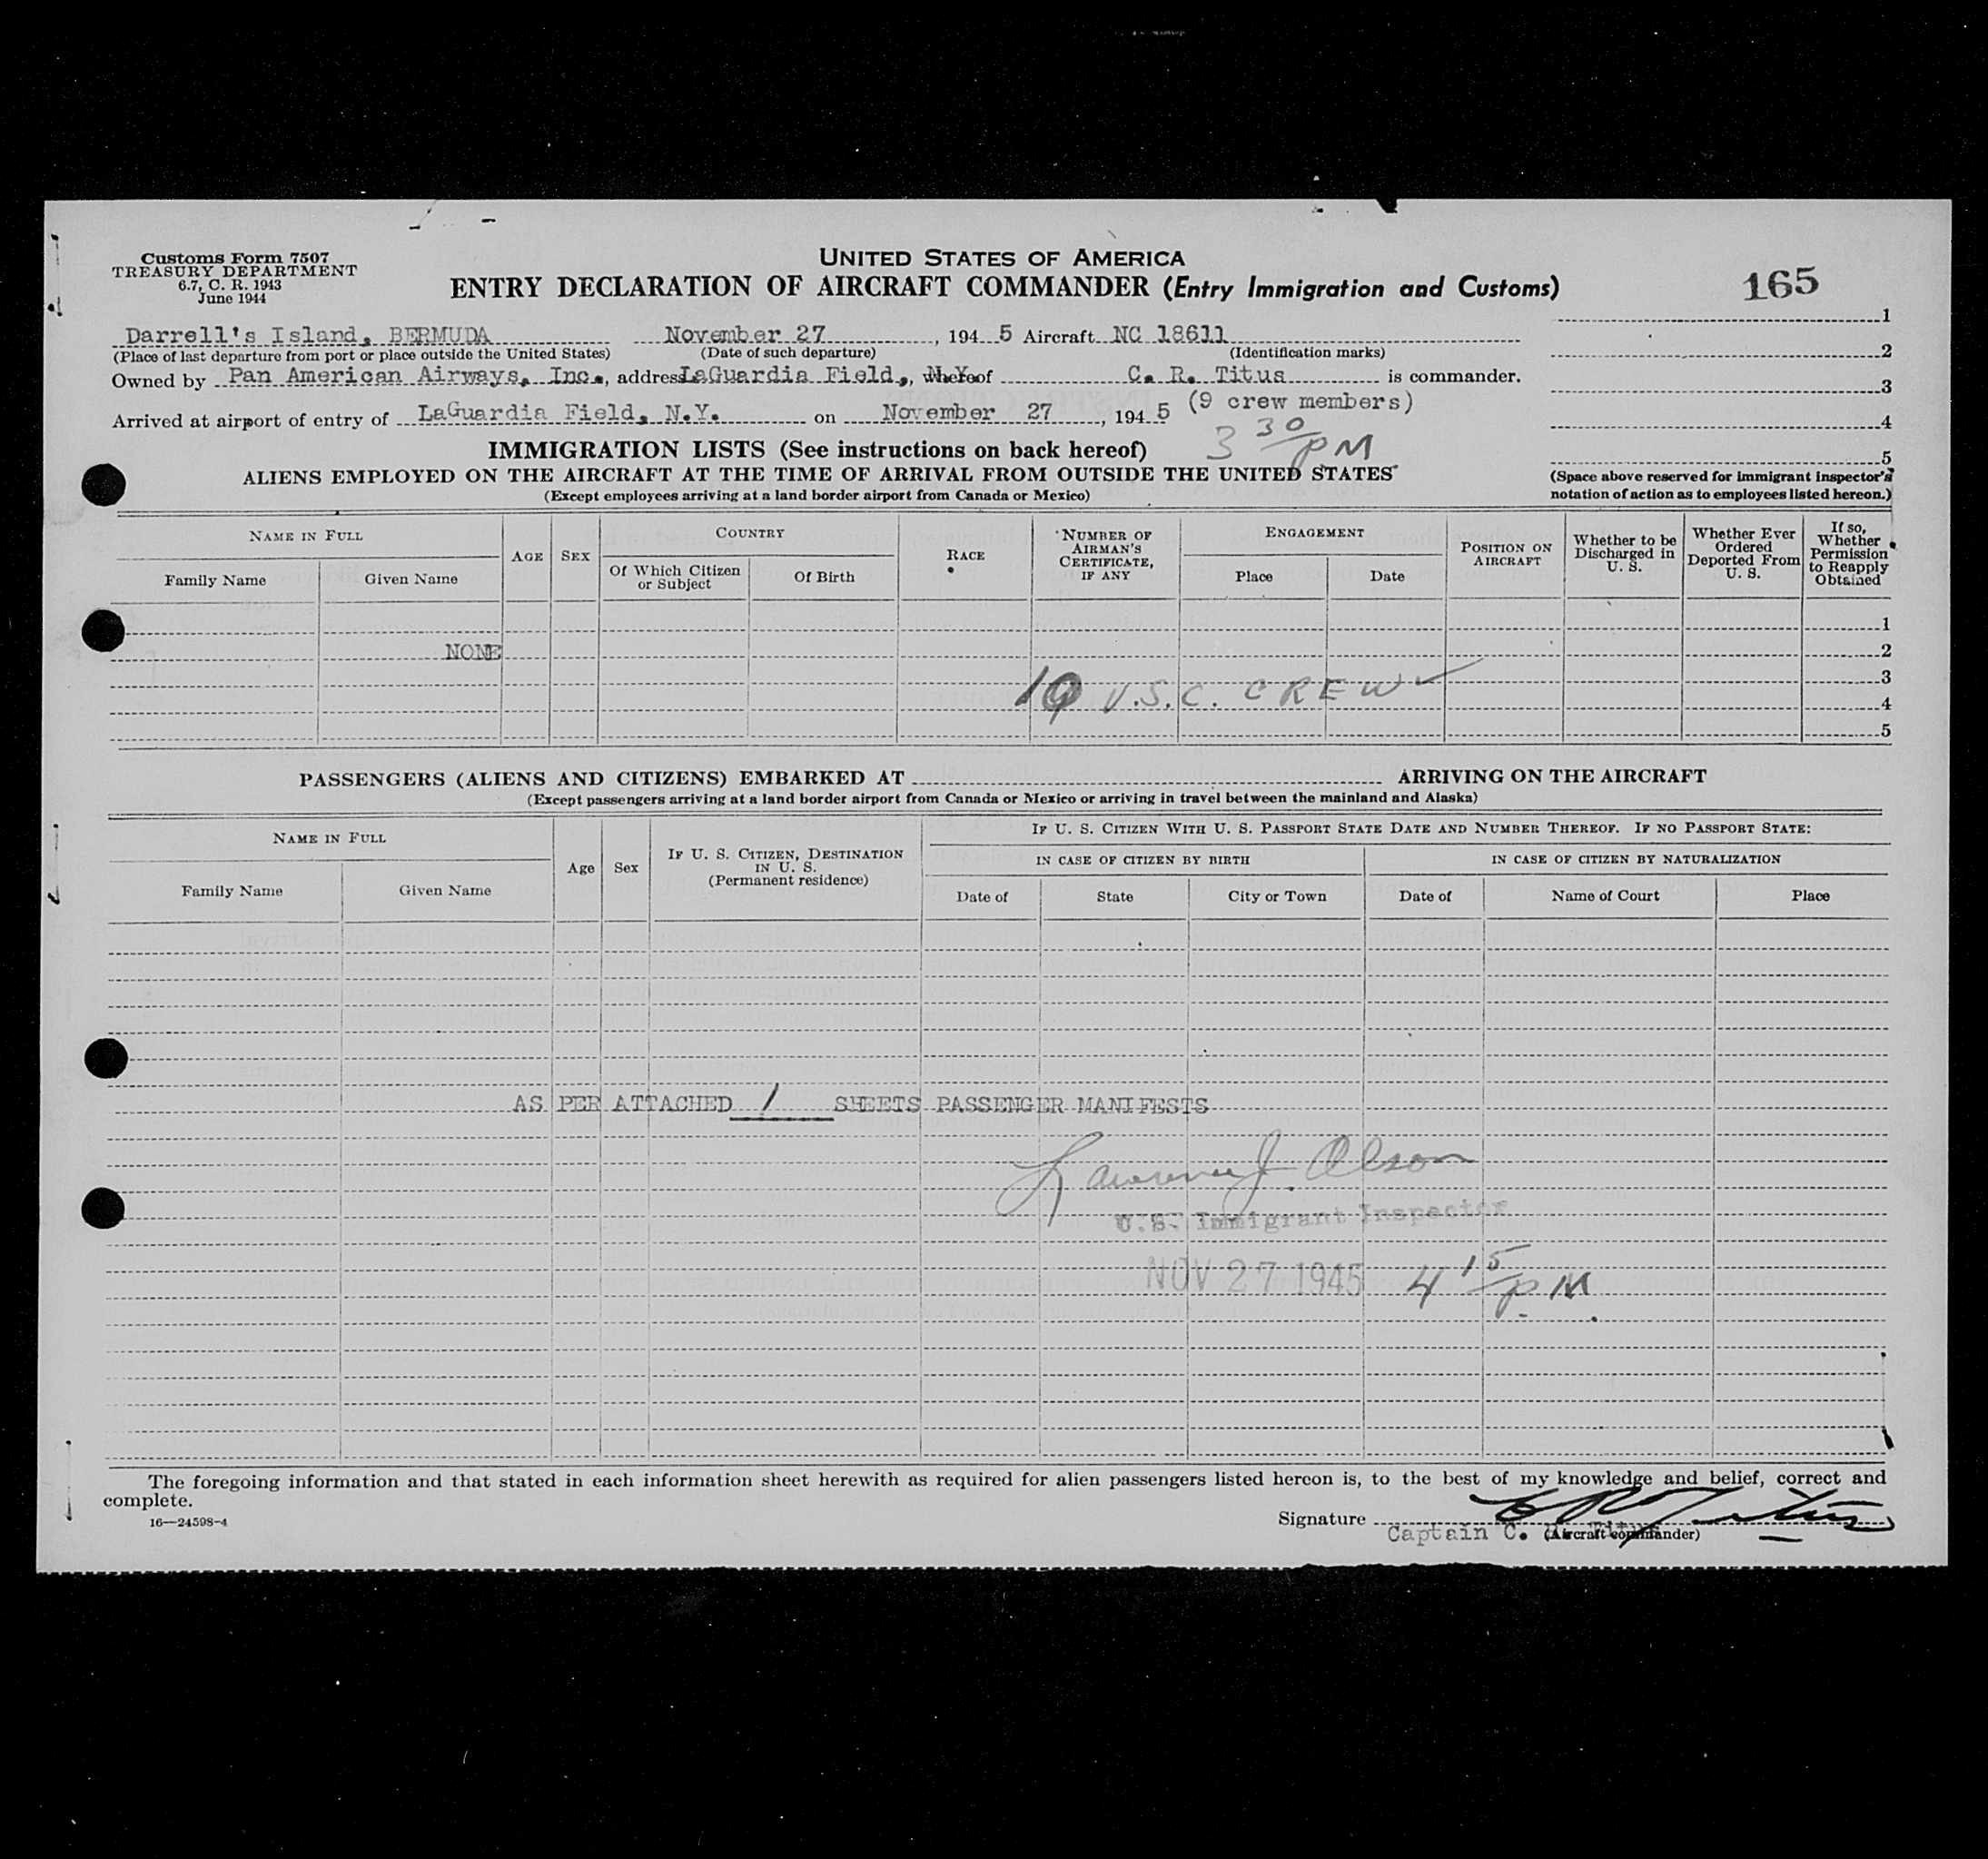 UNITED STATES OF AMERICA
Customs Form 7507
TREASURY DEPARTMENT
6.7, C. R. 1943
June 1944
ENTRY DECLARATION OF AIRCRAFT COMMANDER (Entry Immigration and Customs)
165
1
Darrell's Island, BERMUDA November 27, 194 5 Aircraft NC 18611
(Place of last departure from port or place outside the United States) (Date of such departure) (Identification marks)
2
Owned by Pan American Airways, Inc., address LaGuardia Field, N.Y., whereof C. R. Titus is commander.
3
Arrived at airport of entry of LaGuardia Field, N.Y. on November 27, 194 5 (9 crew members)
4
3 30/PM
IMMIGRATION LISTS (See instructions on back hereof)
5
ALIENS EMPLOYED ON THE AIRCRAFT AT THE TIME OF ARRIVAL FROM OUTSIDE THE UNITED STATES
(Except employees arriving at a land border airport from Canada or Mexico)
(Space above reserved for immigrant inspector's
notation of action as to employees listed hereon.)
NAME IN FULL
Family Name
Given Name
AGE
SEX
COUNTRY
Of Which Citizen
or Subject
Of Birth
RACE
NUMBER OF
AIRMAN'S
CERTIFICATE,
IF ANY
ENGAGEMENT
Place
Date
POSITION ON
AIRCRAFT
Whether to be
Discharged in
U. S.
Whether Ever
Ordered
Deported From
U. S.
If so,
Whether
Permission
to Reapply
Obtained
1
NONE 2
3
U.S.C. CREW
4
5
PASSENGERS (ALIENS AND CITIZENS) EMBARKED AT ARRIVING ON THE AIRCRAFT
(Except passengers arriving at a land border airport from Canada or Mexico or arriving in travel between the mainland and Alaska)
NAME IN FULL
Family Name
Given Name
Age
Sex
IF U. S. CITIZEN, DESTINATION
IN U. S.
(Permanent residence)
IF U. S. CITIZEN WITH U. S. PASSPORT STATE DATE AND NUMBER THEREOF. IF NO PASSPORT STATE:
IN CASE OF CITIZEN BY BIRTH
IN CASE OF CITIZEN BY NATURALIZATION
Date of
State
City or Town
Date of
Name of Court
Place
AS PER ATTACHED 1 SHEETS PASSENGER MANIFESTS
Lawrence J. Olson
U.S. Immigrant Inspector
NOV 27 1945 4 15/P.M.
The foregoing information and that stated in each information sheet herewith as required for alien passengers listed hereon is, to the best of my knowledge and belief, correct and
complete.
16—24598-4
Signature C R Titus
Captain C.
(Aircraft commander)